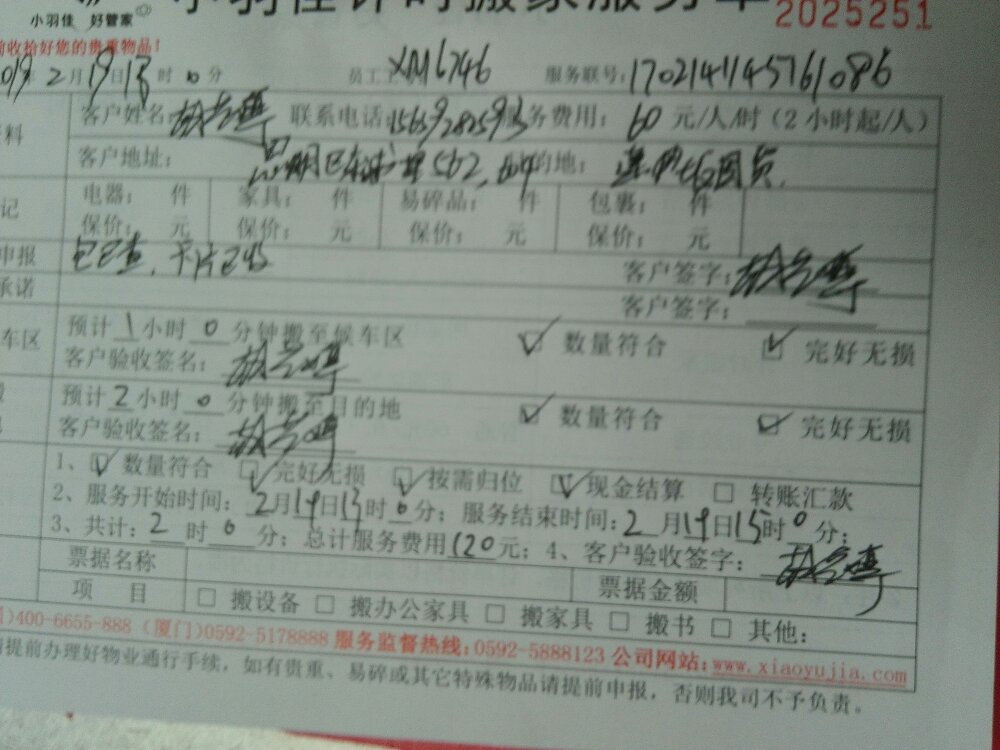 小羽佳计时搬家服务单
2025251
小羽佳 好管家
前收拾好您的贵重物品!
019年2月19日13时0分 员工 XM6746 服务联号:1702141145761086
客户姓名: 联系电话:15659282593 服务费用: 60 元/人/时(2小时起/人)
客户地址: 的地:
电器: 件 家具: 件 易碎品: 件 包裹: 件
保价: 元 保价: 元 保价: 元 保价: 元
申报 包已查,卡片已收 客户签字:
承诺 客户签字:
车区 预计1小时0分钟搬至候车区 数量符合 完好无损
客户验收签名:
预计2小时0分钟搬至目的地 数量符合 完好无损
客户验收签名:
1、数量符合 完好无损 按需归位 现金结算 转账汇款
2、服务开始时间:2月19日13时0分;服务结束时间:2月19日15时0分;
3、共计:2时0分;总计服务费用120元;4、客户验收签字:
票据名称 票据金额
项 目 搬设备 搬办公家具 搬家具 搬书 其他:
)400-6655-888(厦门)0592-5178888 服务监督热线:0592-5888123 公司网站:www.xiaoyujia.com
请提前办理好物业通行手续,如有贵重、易碎或其它特殊物品请提前申报,否则我司不予负责。